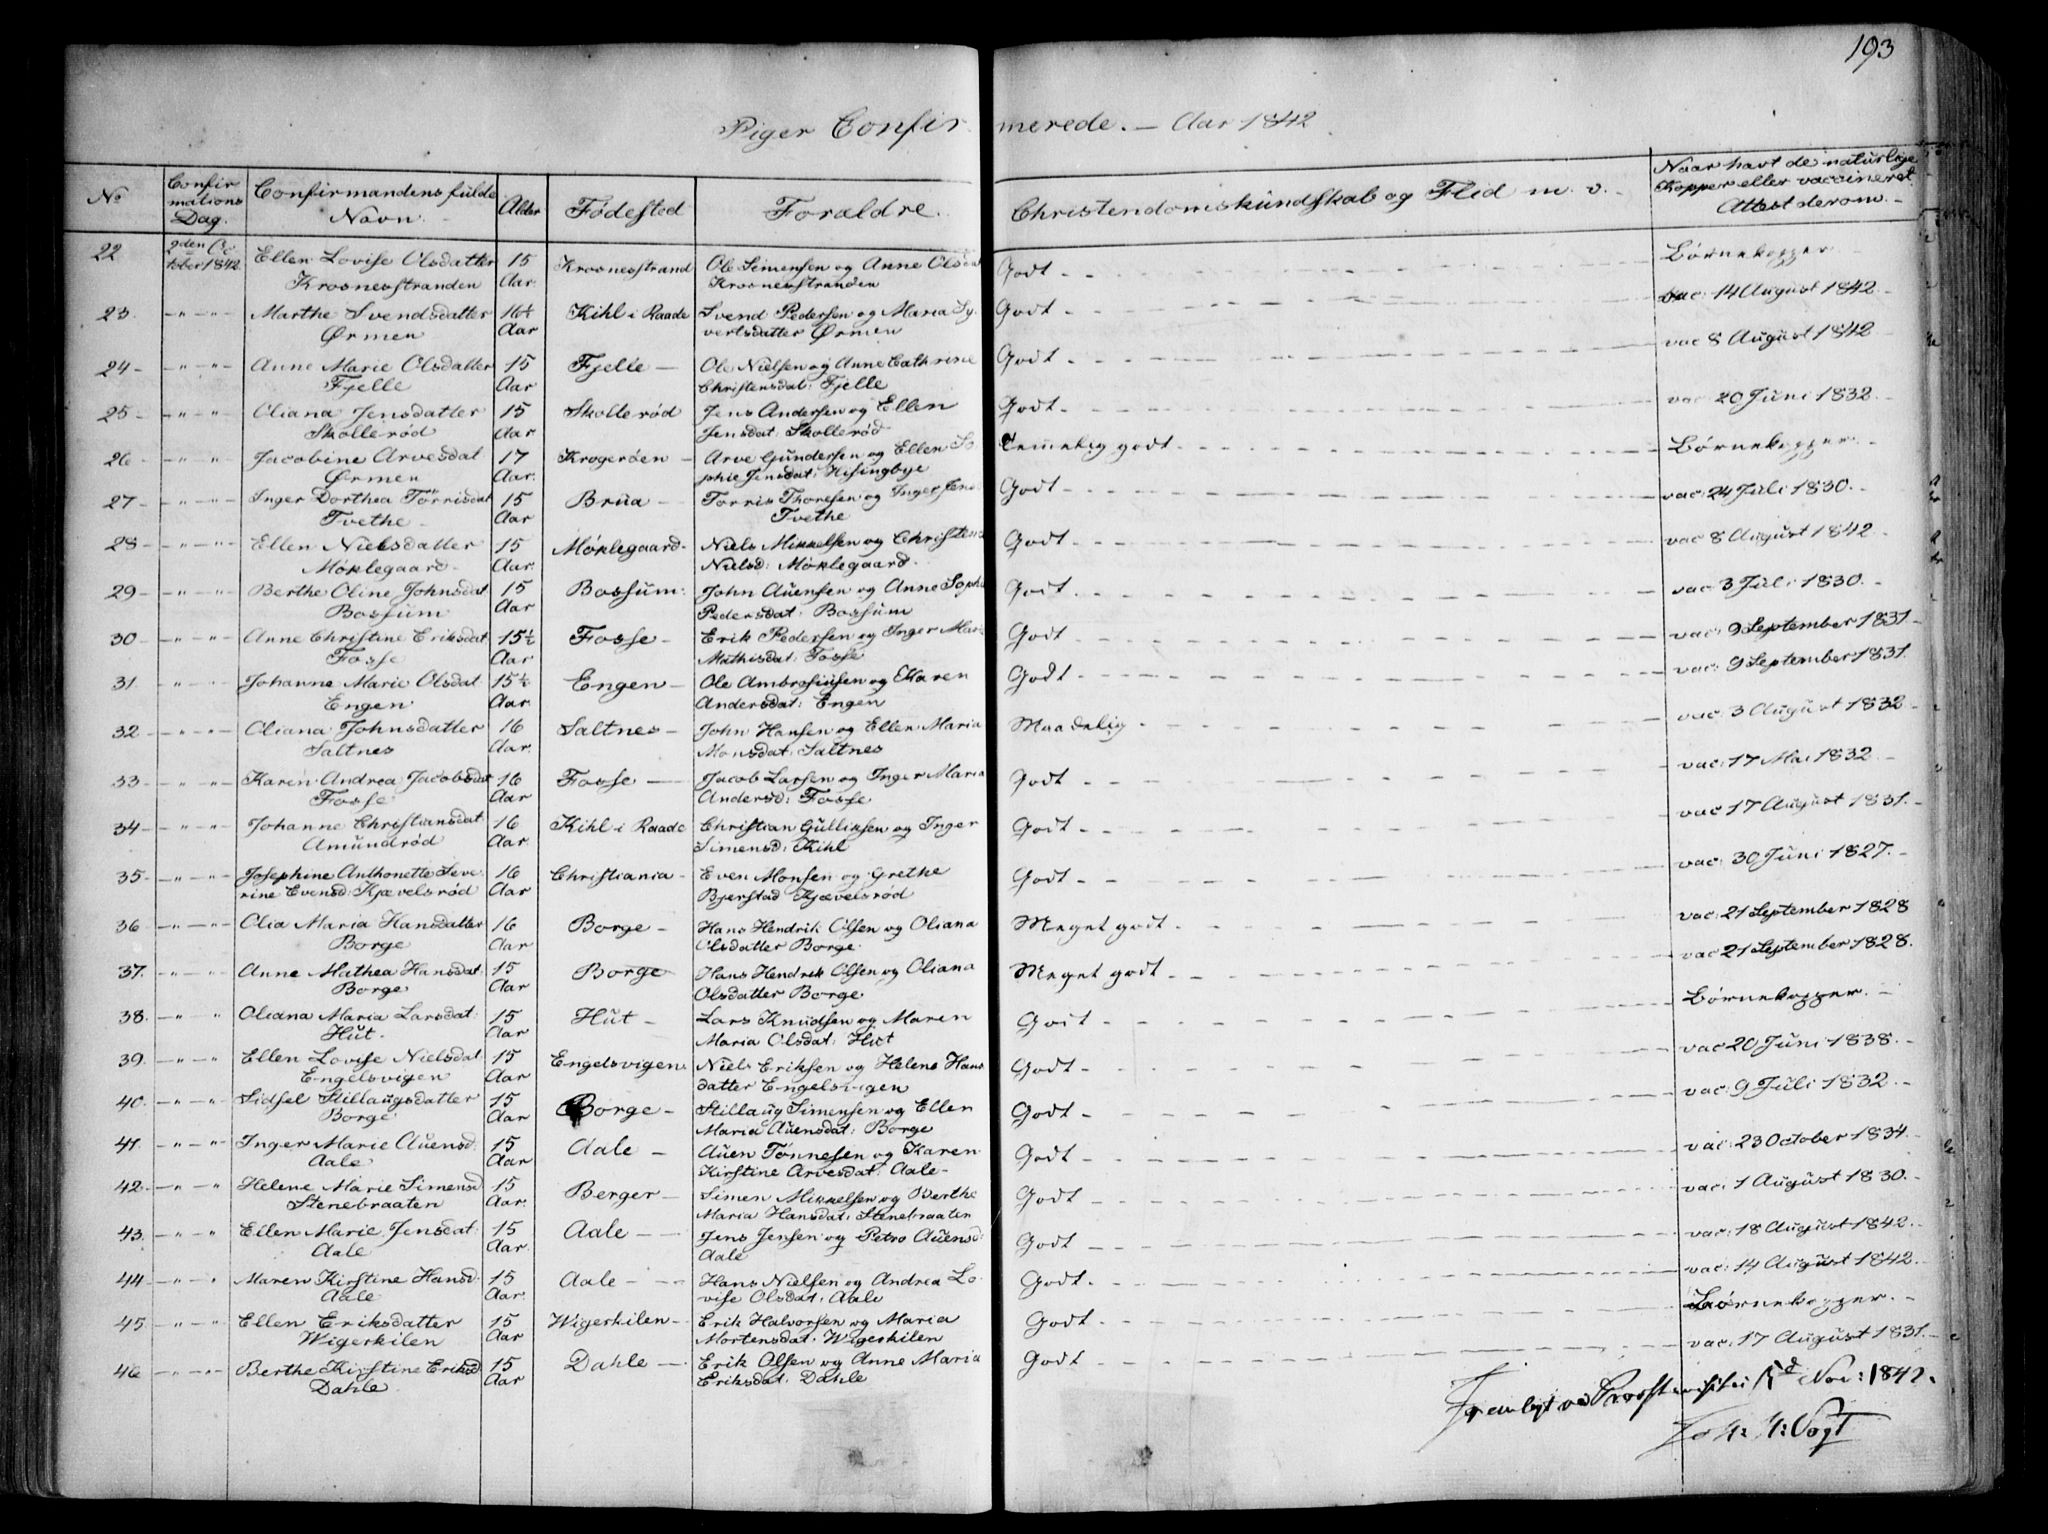 193
Piger Confirmerede. — Aar 1842
No
Confirmations Dag.
Confirmandens fulde Navn.
Alder
Fødested
Forældre.
Christendomskundskab og Flid m. v.
Naar havt de naturlige Kopper eller vaccineret. Attest derom.
22 2den October 1842 Ellen Lovise Olsdatter 15 Krosnesstrand Ole Simensen og Anne Olsdat Godt Børnekopper
Krosnesstranden Aar. Krosnesstranden
23. -"-"-" Marthe Svendsdatter 16½ Kihl i Raade Svend Pedersen og Maria Sy- Godt vac: 14 August 1842
Ørmen Aar vertsdatter Ørmen
24 -"-"-" Anne Marie Olsdatter 15 Fjelle Ole Nielsen og Anne Cathrine Godt vac 8 August 1842
Fjelle Aar Christensdat: Fjelle
25 -"-"-" Oliana Jensdatter 15 Skollerød Jens Andersen og Ellen Godt vac 20 Juni 1832.
Skollerød Aar Jensdat: Skollerød
26 -"-"-" Jacobine Arvesdat 17 Krogerøen Arve Gundersen og Ellen So- Temmelig godt Børnekopper
Ørmen Aar. phie Jensdat: Kisingbye
27 -"-"-" Inger Dorthea Torrisdat 15 Brüa Torris Thoresen og Inger Jens Godt vac: 24 Juli 1830.
Tvethe Aar Tvethe
28 -"-"-" Ellen Nielsdatter 15 Møklegaard Niels Mikkelsen og Christens Godt vac 8 August 1842.
Møklegaard Aar. Nielsd: Møklegaard
29 -"-"-" Berthe Oline Johnsdat 15 Bossum: John Auensen og Anne Sophi Godt vac: 3 Juli 1830.
Bossum Aar Pedersdat: Bossum
30 -"-"-" Anne Christine Eriksdat 15½ Fosse Erik Pedersen og Inger Mari Godt vac: 9 September 1831
Fosse Aar Mathisdat: Fosse
31. -"-"-" Johanne Marie Olsdat 15½ Engen Ole Ambrosiusen og Maren Godt vac: 9 September 1831.
Engen Aar Andersdat: Engen
32 -"-"-" Oliana Johnsdatter 16 Saltnes John Hansen og Ellen Maria Maadelig vac: 3 August 1832
Saltnes Aar. Monsdat: Saltnes
33 -"-"-" Karen Andrea Jacobsdat 16 Fosse Jacob Larsen og Inger Maria Godt vac: 17 Mai 1832.
Fosse Aar Andersd: Fosse
34 -"-"-" Johanne Christiansdat 16 Kihl i Raade Christian Gulliksen og Inger Godt vac 17 August 1831.
Amundrød Aar. Simensd: Kihl
35 -"-"-" Josephine Anthonette Seve- 16 Christiania Even Monsen og Grethe Godt vac: 30 Juni 1827.
rine Evensd: Kjævelsrød Aar Bjerstad Kjævelsrød
36 -"-"-" Olia Maria Hansdatter 16 Borge Hans Hendrik Olsen og Oliana Meget godt vac: 21 September 1828
Borge Aar Olsdatter Borge
37. -"-"-" Anne Mathea Hansdat: 15 Borge Hans Hendrik Olsen og Oliana Meget godt vac 21 September 1828.
Borge Aar Olsdatter Borge
38. -"-"-" Oliana Maria Larsdat: 15 Hut Lars Knudsen og Maren Godt Børnekopper.
Hut. Aar Maria Olsdat: Hut
39. -"-"-" Ellen Lovise Nielsdat 15 Engelsvigen Niels Eriksen og Helene Hans Godt vac 20 Juni 1838.
Engelsvigen Aar datter Engelsvigen
40. -"-"-" Sidsel Stillaugsdatter 15 Borge Stillaug Simensen og Ellen Godt vac: 9 Juli 1832.
Borge Aar Maria Auensdat: Borge
41. -"-"-" Inger Marie Auensd. 15 Aale Auen Tønnesen og Karen Godt vac: 23 October 1834.
Aale Aar Kirstine Arvesdat: Aale
42. -"-"-" Helene Marie Simensd 15 Berger Simen Mikkelsen og Berthe Godt vac: 1 August 1830.
Stenebraaten Aar. Maria Hansdat: Stenebraaten
43. -"-"-" Ellen Marie Jensdat: 15 Aale Jens Jensen og Petro Auensd: Godt vac: 18 August 1842.
Aale Aar. Aale
44 -"-"-" Maren Kirstine Hansd. 15 Aale Hans Nielsen og Andrea Lo- Godt. vac: 14 August 1842.
Aale Aar vise Olsdat: Aale
45 -"-"-" Ellen Eriksdatter 15 Wigerkilen Erik Halvorsen og Maria Godt Børnekopper.
Wigerkilen Aar Mortensdat: Wigerkilen
46 -"-"-" Berthe Kirstine Eriksd 15 Dahle Erik Olsen og Anne Maria Godt vac: 17 August 1831.
Dahle Aar Eriksdat: Dahle
Fremlagt ved Provstevisitats 5d Nov: 1842.
Vogt